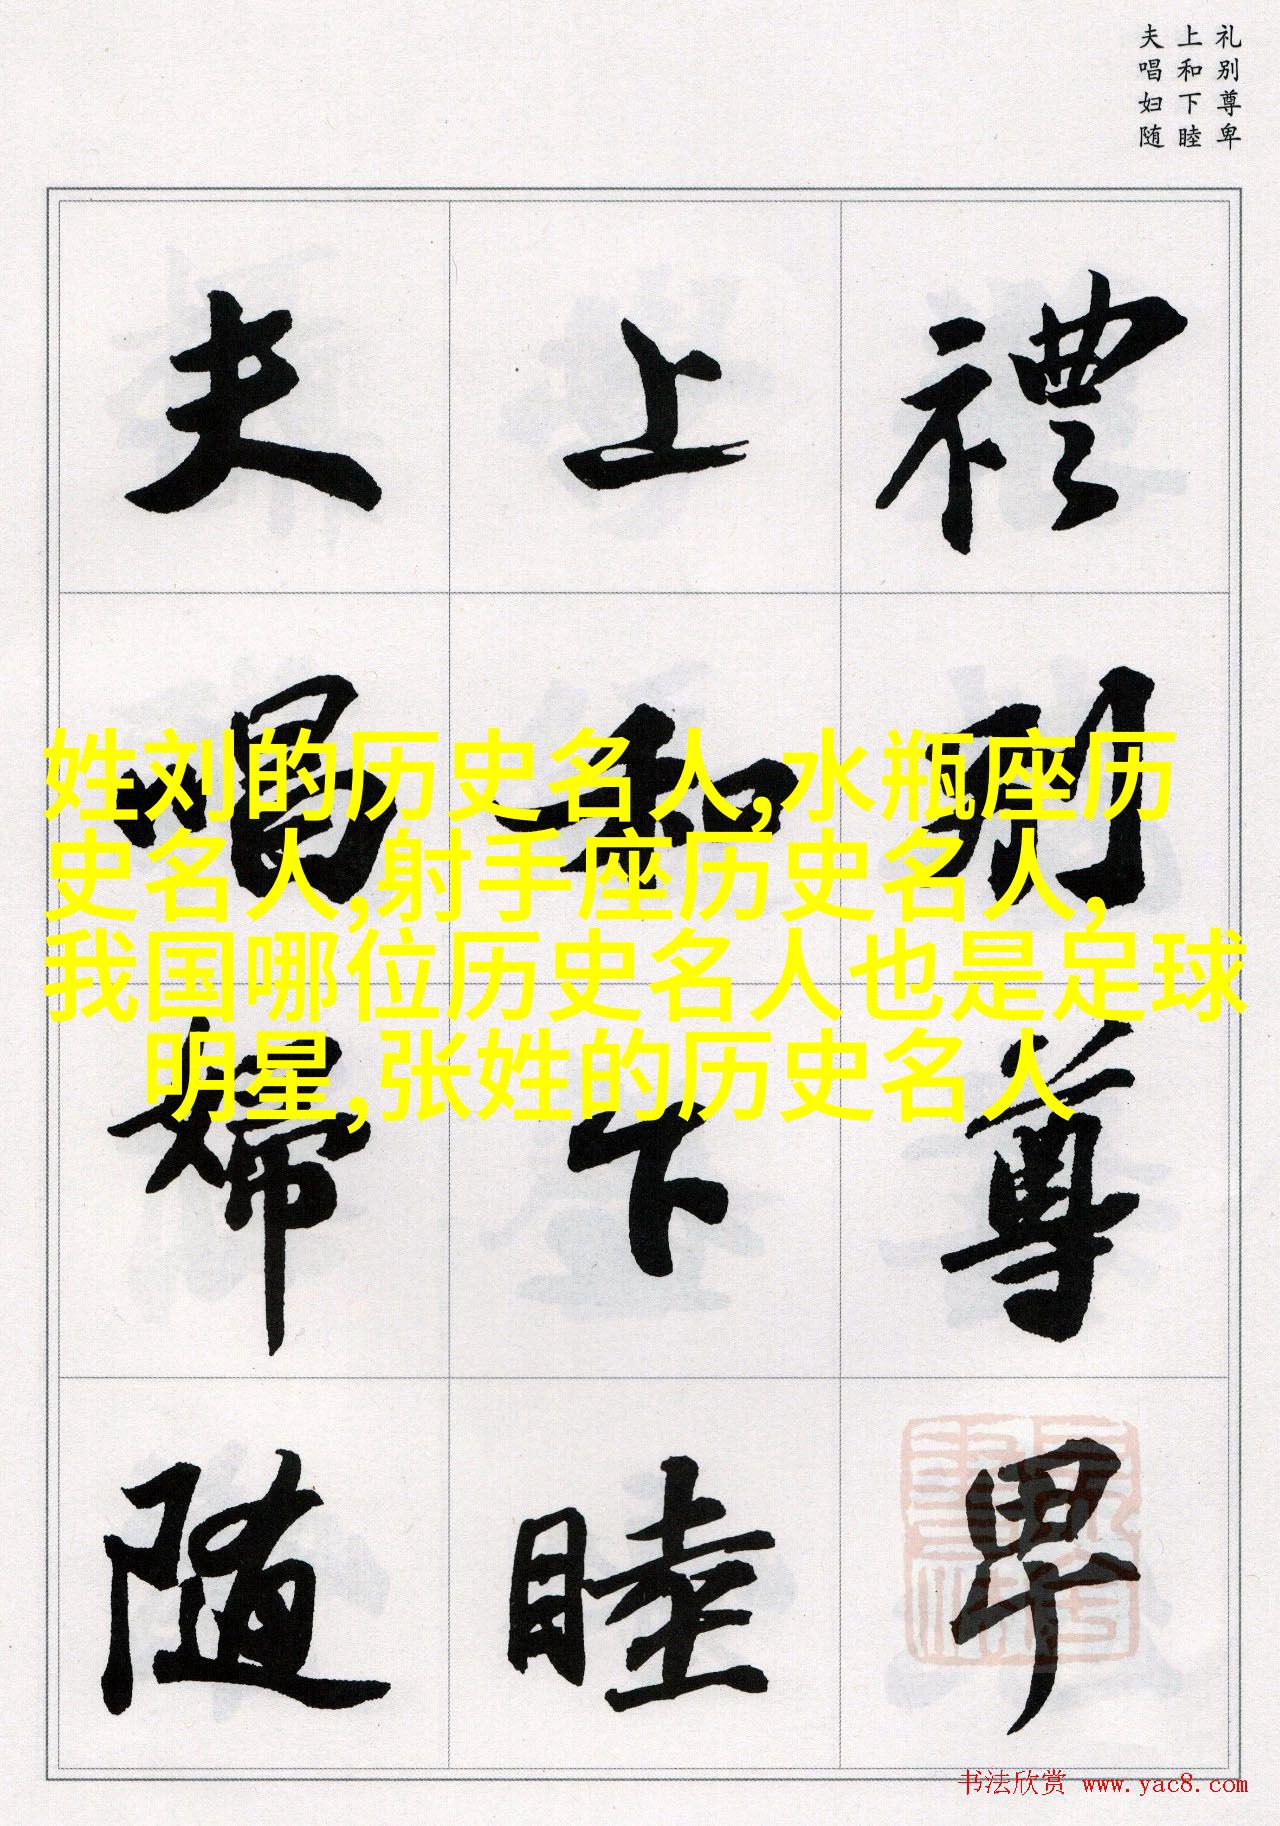 礼别尊卑
上和下睦
夫唱妇随
禮別尊卑
上和下睦
夫唱婦随
姓刘的历史名人,水瓶座历
史名人,射手座历史名人,
我国哪位历史名人也是足球
明星,张姓的历史名人
书法欣赏 www.yac8.com